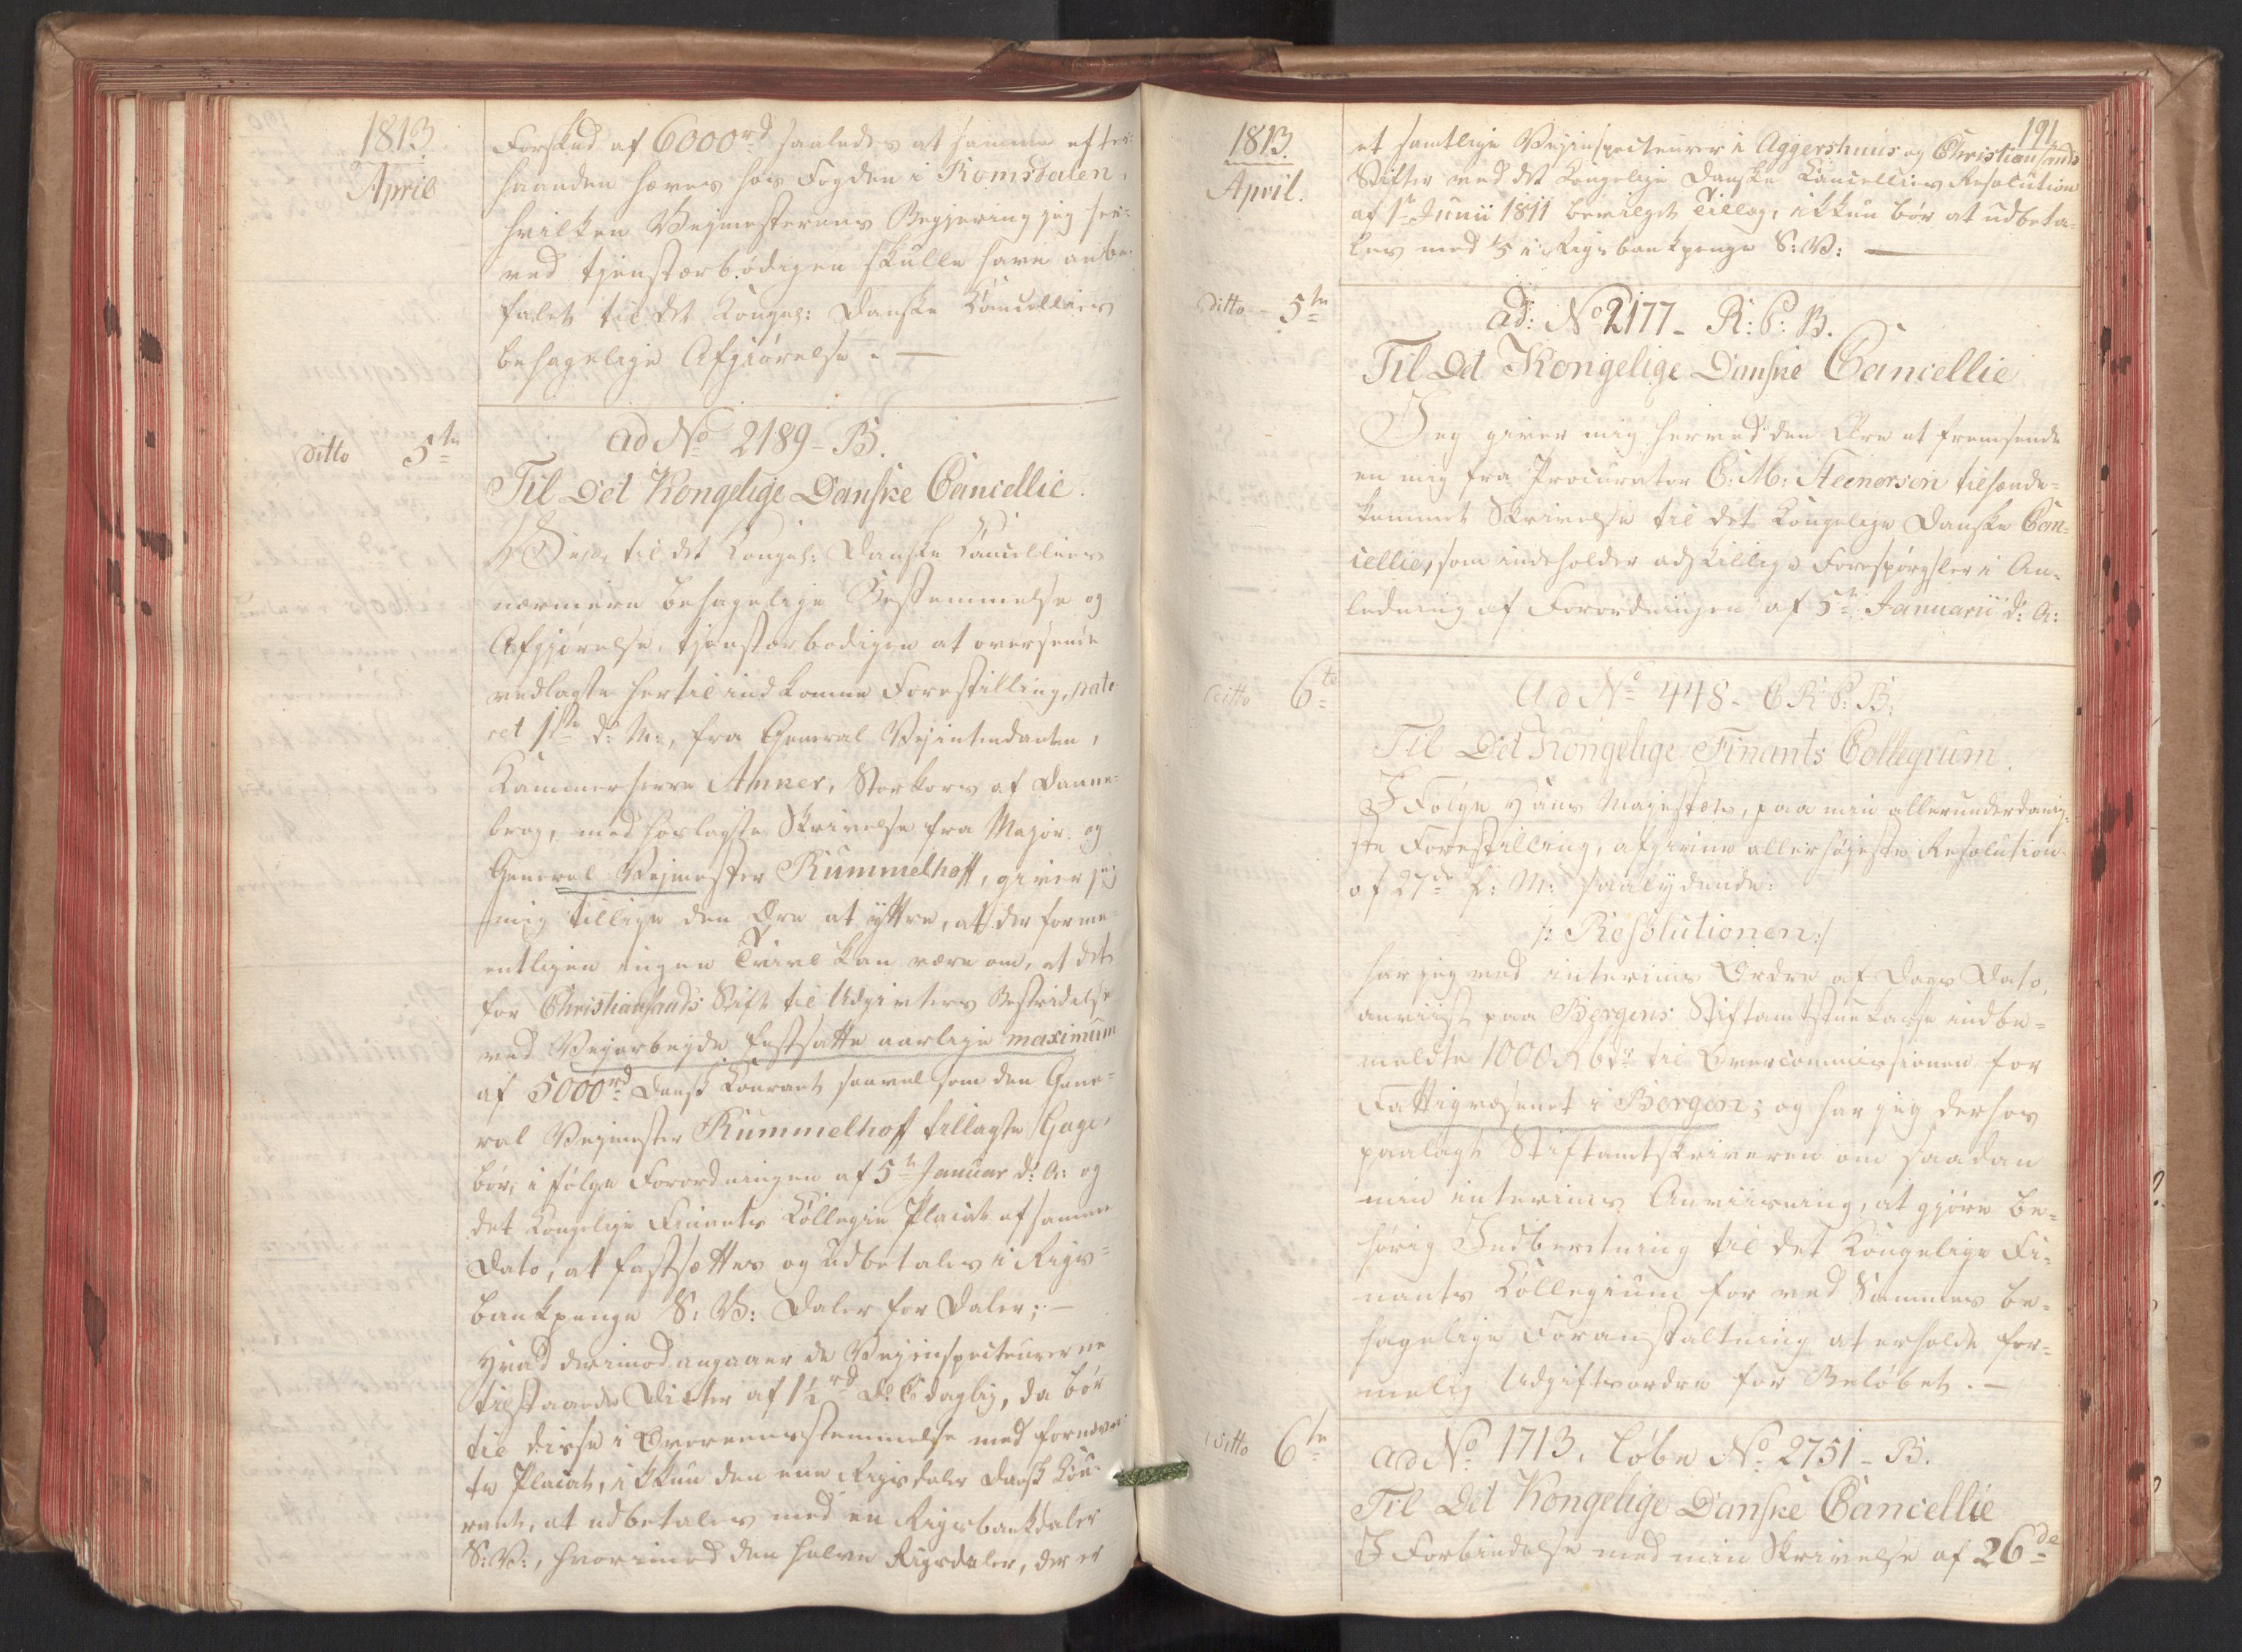 1813.
April
Forskud af 6000rd saaledes at samme efter-
haanden hæves hos Fogden i Romsdalen,
hvilken Vejmesterens Begjering jeg her-
ved tjenstærbødigen skulle have anbe-
falet til det Kongel: Danske Cancellies
behagelige Afgiørelse. —
ditto 5te
ad No 2189 - B.
Til Det Kongelige Danske Cancellie.
til det Kongel: Danske Cancellies
nærmere behagelige Bestemmelse og
Afgjørelse, tjenstærbødigen at oversende
vedlagte hertil indkomne Forestilling, date-
ret 1ste d: M:, fra General Vejintendanten,
Kammerherre Anker, Storkors af Danne-
brog, med hoslagte Skrivelse fra Major og
General Vejmester Rummelhoff, giver jeg
mig tillige den Ære at yttre, at der forme-
entligen ingen Tvivl kan være om, at det
for Christiansands Stift til Udgivters Bestridelse
ved Vejarbejde fastsatte aarlige maximum
af 5000rd Dansk Courant saavel som den Gene-
ral Vejmester Rummelhoff tillagte Gage,
bør, i følge Forordningen af 5te Januar d: A: og
det Kongelige Finants Collegie Placat af samme
Dato, at fastsættes og udbetales i Rigs-
bankpenge S: V: Daler for Daler; —
Hvad derimod angaaer de Vejinspecteurerne
tilstaaede Diæter af 1½rd D: C daglig, da bør
til disse i Overeensstemmelse med fornævn-
te Placat, ikkun den ene Rigsdaler Dansk Cou-
rant, at udbetales med en Rigsbankdaler
S: V:, hvorimod den halve Rigsdaler, der er
191.
1813.
April.
et samtlige Vejinspecteurer i Aggershuus og Christiansands
Stifter ved det Kongelige Danske Cancellies Resolution
af 1te Junii 1811 bevilget Tillæg, ikkun bør at udbeta-
les med 1/5 i Rigsbankpenge S: V: —
ditto - 5te
ad: No 2177 - R: C: B.
Til Det Kongelige Danske Cancellie
Jeg giver mig herved den Ære at fremsende
en mig fra Procurator C: M: Steenersen tilhænde-
kommet Skrivelse til det Kongelige Danske Can-
cellie, som indeholder adskillige Forespørgsler i An-
ledning af Forordningen af 5te Januarii d: A:
ditto 6te
Ad No 448 - C R C: B:
Til Det Kongelige Finants Collegium.
I Følge Hans Majestæts, paa min allerunderdanig-
ste Forestilling, afgivne allerhøjeste Resolution
af 27de f: M: saalydende:
/: Resolutionen :/
har jeg ved interims Ordre af Dags Dato,
anviist paa Bergens Stiftamtstuekasse indbe-
meldte 1000 Rbdr til Overcommissionen for
Fattigvæsenet i Bergen; og har jeg derhos
paalagt Stiftamtskriveren om saadan
min interims Anviisning, at gjøre be-
hørig Indberetning til det Kongelige Fi-
nants Collegium for ved Sammes be-
hagelige Foranstaltning at erholde for-
melig Udgiftsordre for Beløbet. —
ditto 6te
ad No 1713. løbe No 2751 - B.
Til Det Kongelige Danske Cancellie
I Forbindelse med min Skrivelse af 26de